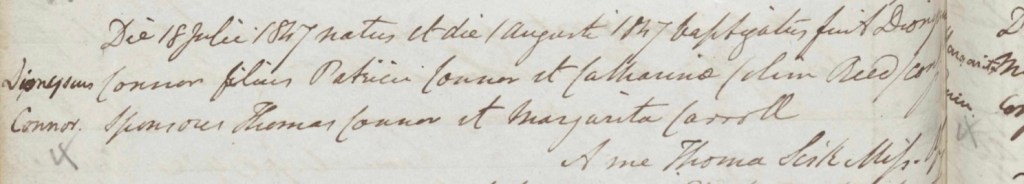 Die 18 Julii 1847 natus et die 1 Augusti 1847 baptizatus fuit Diony
Dionysius Connor filius Patricii Connor et Catharinæ (olim Reed) con
Connor. Sponsores Thomas Connor et Margarita Carroll
A me Thoma Sisk Miss.